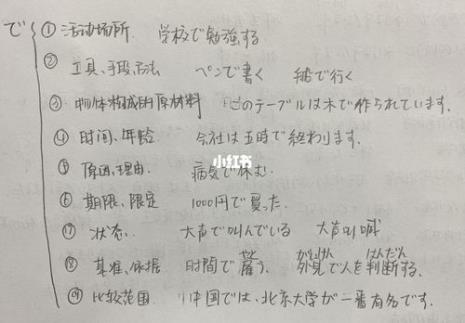 で
① 活动场所. 学校で勉強する
② 工具、手段、方法 ペンで書く 船で行く
③ 物体构成的原材料 このテーブルは木で作られています.
④ 时间、年龄 会社は五時で終わります.
⑤ 原因、理由. 病気で休む.
⑥ 期限、限定 1000円で買った.
⑦ 状态. 大声で叫んでいる 大声叫喊
⑧ 基准、依据 時間で雇う. 外見で人を判断する.
やと がいけん はんだん
⑨ 比较范围 中国では、北京大学が一番有名です.
小红书